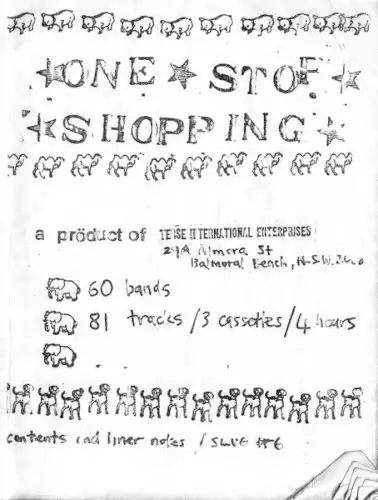 ONE STOP
SHOPPING
a product of TERSE INTERNATIONAL ENTERPRISES
Almora St
Balmoral Beach, N.S.W.
60 bands
81 tracks / 3 cassettes / 4 hours
contents and liner notes / SLUG #6